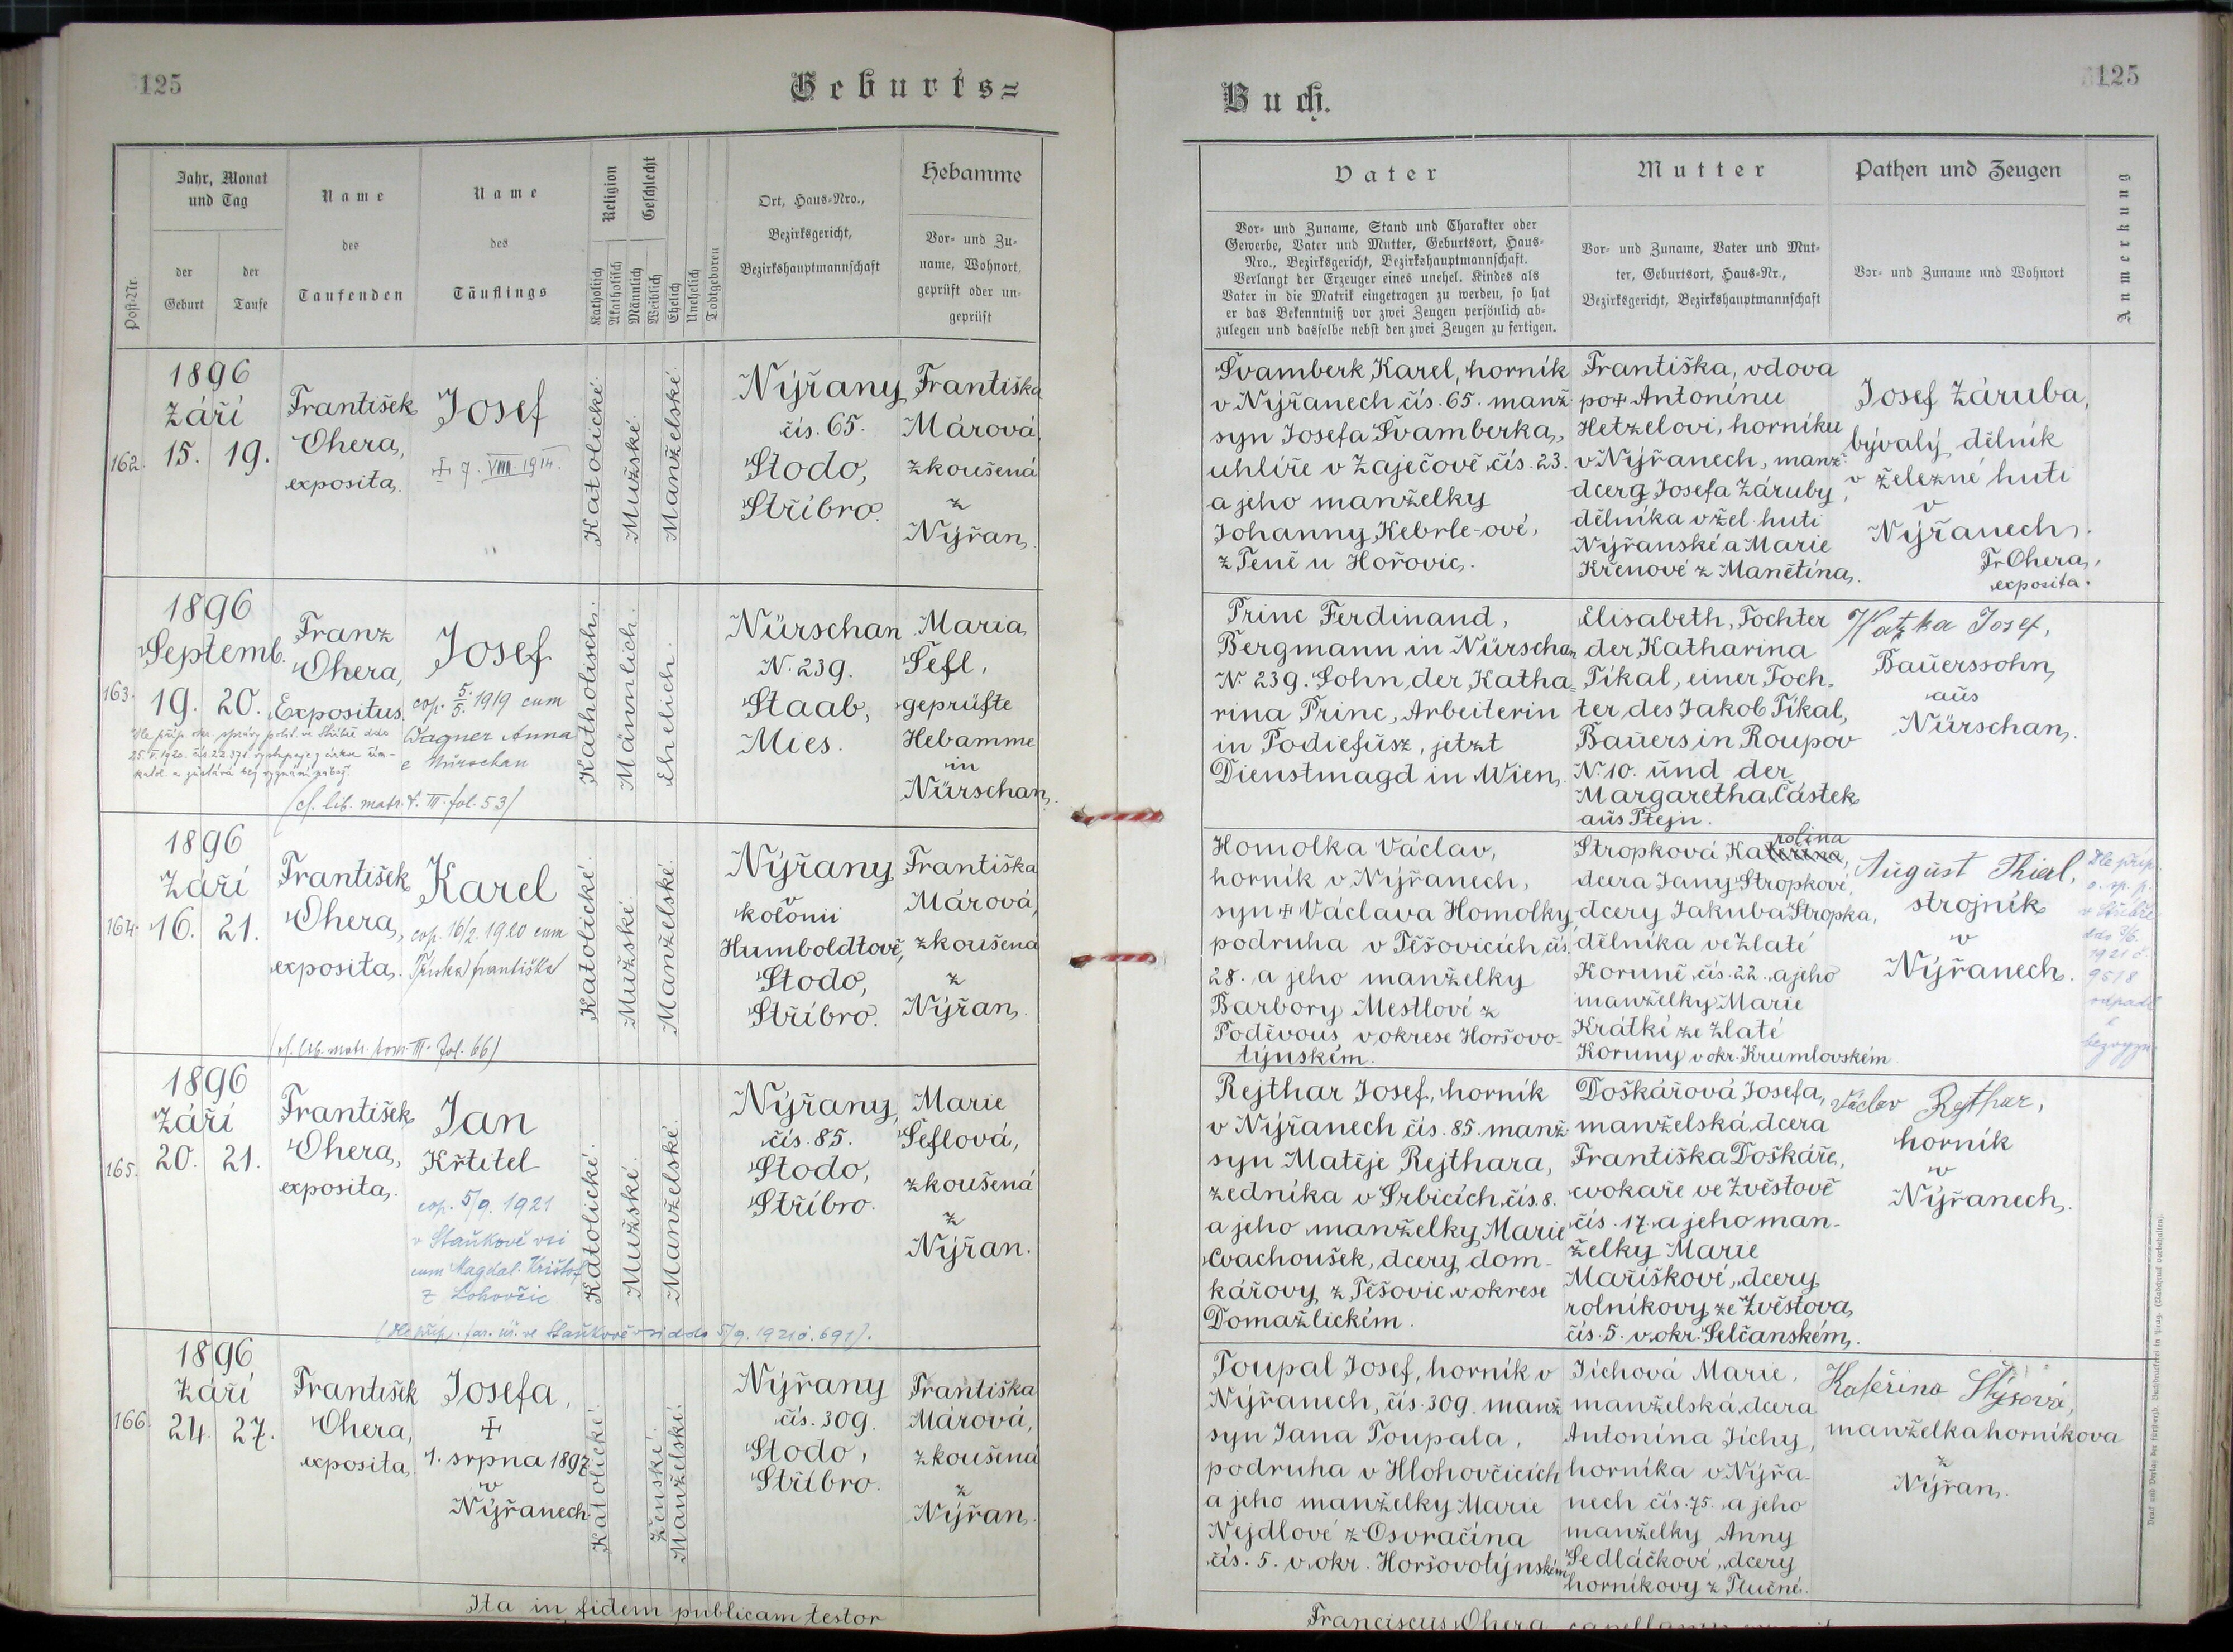 125
Geburts=
Post-Nr.
Jahr, Monat
und Tag
der
Geburt
der
Taufe
Name
des
Taufenden
Name
des
Täuflings
Religion
Katholisch
Akatholisch
Geschlecht
Männlich
Weiblich
Ehelich
Unehelich
Todtgeboren
Ort, Haus-Nro.,
Bezirksgericht,
Bezirkshauptmannschaft
Hebamme
Vor- und Zu-
name, Wohnort,
geprüft oder un-
geprüft
162.
1896
Září
15. 19.
František
Ohera,
exposita.
Josef
7. VIII. 1914.
Katolické.
Mužské.
Manželské.
Nýřany
čís. 65.
Stodo,
Stříbro.
Františka
Márová,
zkoušená
z
Nýřan.
163.
1896
Septemb.
19. 20.
Franz
Ohera,
Expositus.
Josef
cop. 5/5. 1919 cum
Wagner Anna
e Nürschan
(cf. lib. matr. t. III. fol. 53)
Katholisch.
Männlich.
Ehelich.
Nürschan
N. 239.
Staab,
Mies.
Maria
Šefl,
geprüfte
Hebamme
in
Nürschan.
164.
1896
Září
16. 21.
František
Ohera,
exposita.
Karel
cop. 16/2. 1920 cum
Františka
(cf. lib. matr. tom. III. fol. 66)
Katolické.
Mužské.
Manželské.
Nýřany
v
kolonii
Humboldtově,
Stodo,
Stříbro.
Františka
Márová,
zkoušená
z
Nýřan.
165.
1896
Září
20. 21.
František
Ohera,
exposita.
Jan
Křtitel
cop. 5/9. 1921
v Staňkově vsi
cum Magdal. Krištof
z Lohovčic
(Dle příp. far. úř. ve Staňkově vsi ddo 5/9. 1921 č. 691).
Katolické.
Mužské.
Manželské.
Nýřany
čís. 85.
Stodo,
Stříbro.
Marie
Šeflová,
zkoušená
z
Nýřan.
166.
1896
Září
24. 27.
František
Ohera,
exposita.
Josefa,
+
1. srpna 1897
v
Nýřanech.
Katolické.
Ženské.
Manželské.
Nýřany
čís. 309.
Stodo,
Stříbro.
Františka
Márová,
zkoušená
z
Nýřan.
Ita in fidem publicam testor
125
Buch.
Vater
Vor- und Zuname, Stand und Charakter oder
Gewerbe, Vater und Mutter, Geburtsort, Haus-
Nro., Bezirksgericht, Bezirkshauptmannschaft.
Verlangt der Erzeuger eines unehel. Kindes als
Vater in die Matrik eingetragen zu werden, so hat
er das Bekenntniß vor zwei Zeugen persönlich ab-
zulegen und dasselbe nebst den zwei Zeugen zu fertigen.
Mutter
Vor- und Zuname, Vater und Mut-
ter, Geburtsort, Haus-Nr.,
Bezirksgericht, Bezirkshauptmannschaft
Pathen und Zeugen
Vor- und Zuname und Wohnort
Anmerkung
Švamberk Karel, horník
v Nýřanech čís. 65. manž.
syn Josefa Švamberka,
uhlíře v Zaječově čís. 23.
a jeho manželky
Johanny Kebrle-ové,
z Teně u Hořovic.
Františka, vdova
po + Antonínu
Hetzelovi, horníku
v Nýřanech, manž.
dcera Josefa Záruby,
dělníka v žel. huti
Nýřanské a Marie
Křenové z Manětína.
Josef Záruba,
bývalý dělník
v železné huti
v
Nýřanech.
Fr. Ohera,
exposita.
Princ Ferdinand,
Bergmann in Nürschan
N. 239. Sohn der Katha=
rina Princ, Arbeiterin
in Podiefusz, jetzt
Dienstmagd in Wien.
Elisabeth, Tochter
der Katharina
Tikal, einer Toch.
ter des Jakob Tikal,
Bauers in Roupov
N. 10. und der
Margaretha Částek
aus Ptejn.
Katzka Josef,
Bauerssohn
aus
Nürschan.
Homolka Václav,
horník v Nýřanech,
syn + Václava Homolky,
podruha v Těšovicích čís.
28. a jeho manželky
Barbory Mestlové z
Poděvous, v okrese Horšovo-
týnském.
rolina
Stropková Kateřina,
dcera Jany Stropkové,
dcery Jakuba Stropka,
dělníka ve Zlaté
Koruně čís. 22. a jeho
manželky Marie
Krátké ze Zlaté
Koruny v okr. Krumlovském
August Thierl,
strojník
v
Nýřanech.
Dle příp.
o. sp. p.
v Stříbře
ddo 9/6.
1921 č.
9518
odpadl
bezvyzn.
Rejthar Josef, horník
v Nýřanech čís. 85. manž.
syn Matěje Rejthara,
zedníka v Srbicích čís. 8.
a jeho manželky Marie
Cvachoušek, dcery dom-
kářovy z Těšovic v okrese
Domažlickém.
Doškářová Josefa,
manželská dcera
Františka Doškáře,
cvokaře ve Zvěstově
čís. 17. a jeho man-
želky Marie
Maříškové, dcery
rolníkovy ze Zvěstova,
čís. 5. v okr. Selčanském.
Václav Rejthar,
horník
v
Nýřanech.
Toupal Josef, horník v
Nýřanech, čís. 309. manž.
syn Jana Toupala,
podruha v Hlohovčicích
a jeho manželky Marie
Nejdlové z Osvračína
čís. 5. v okr. Horšovotýnském
Jíchová Marie,
manželská dcera
Antonína Jíchy,
horníka v Nýřa-
nech čís. 75. a jeho
manželky Anny
Sedláčkové, dcery
horníkovy z Tlučné.
Kateřina Stýsová,
manželka horníkova
z
Nýřan.
Franciscus Ohera